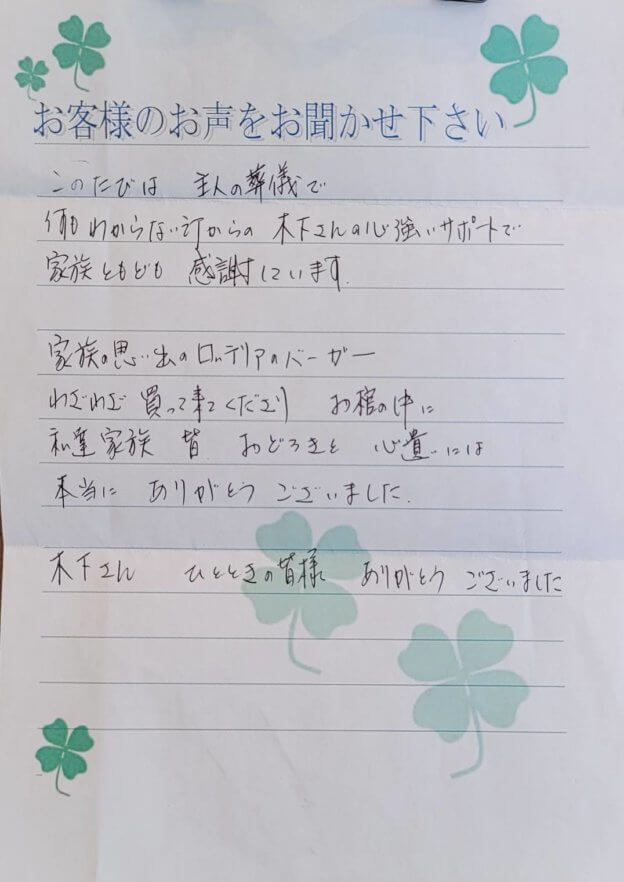 お客様のお声をお聞かせ下さい
このたびは 主人の葬儀で
何もわからない所からの 木下さんの心強いサポートで
家族ともども 感謝しています.
家族の思い出のロッテリアのバーガー
わざわざ 買って来てくださり お棺の中に
私達家族 皆 おどろきと 心遣いには
本当に ありがとう ございました.
木下さん ひとときの皆様 ありがとう ございました